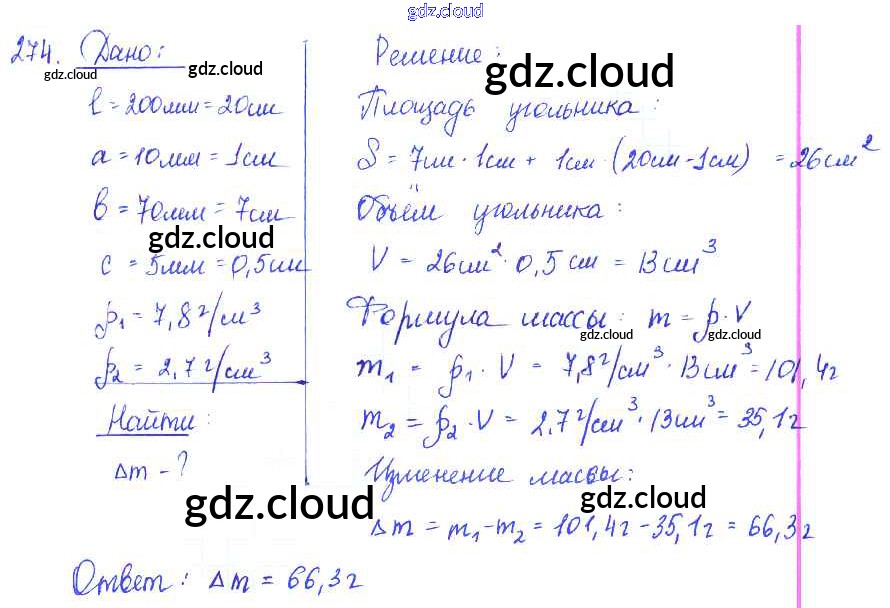 gdz.cloud
274. Дано:
gdz.cloud
gdz.cloud
l = 200мм = 20см
a = 10мм = 1см
b = 70мм = 7см
gdz.cloud
c = 5мм = 0,5см
ρ₁ = 7,8 г/см³
ρ₂ = 2,7 г/см³
Найти:
Δm - ?
gdz.cloud
Решение:
gdz.cloud
Площадь угольника:
S = 7см · 1см + 1см · (20см - 1см) = 26см²
Объём угольника:
gdz.cloud
V = 26см² · 0,5 см = 13см³
Формула массы: m = ρ · V
gdz.cloud
gdz.cloud
m₁ = ρ₁ · V = 7,8 г/см³ · 13см³ = 101,4г
m₂ = ρ₂ · V = 2,7 г/см³ · 13см³ = 35,1г
Изменение массы:
gdz.cloud
Δm = m₁ - m₂ = 101,4г - 35,1г = 66,3г
Ответ: Δm = 66,3г